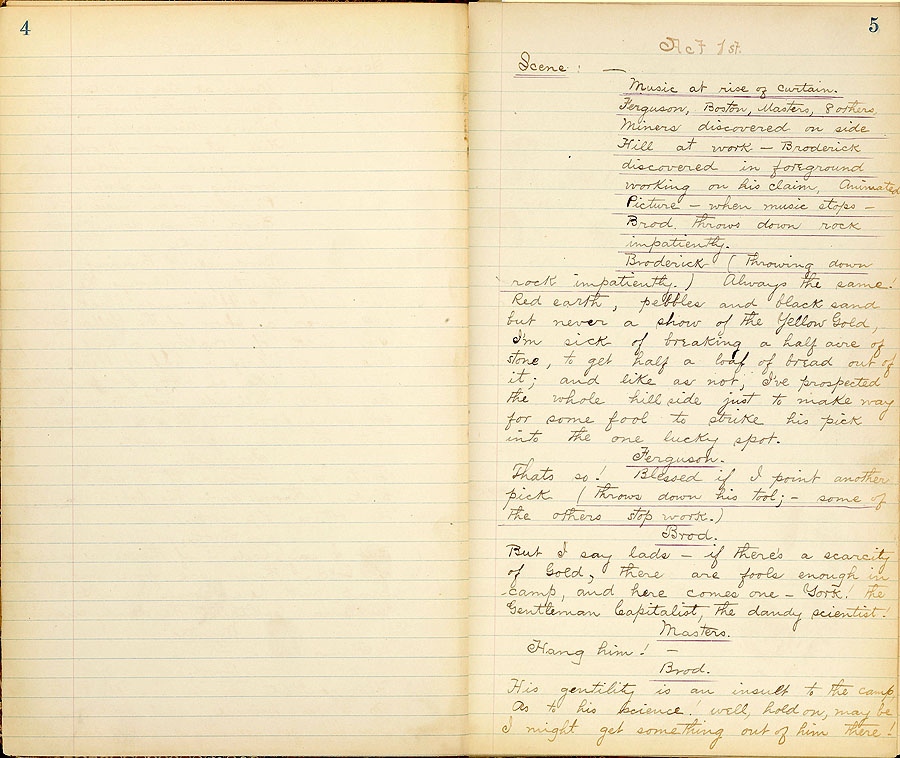 4
5
Act 1st.
Scene: —
Music at rise of curtain.
Ferguson, Boston, Masters, & others,
Miners discovered on side
Hill at work — Broderick
discovered in foreground
working on his claim, Animated
Picture — when music stops —
Brod. throws down rock
impatiently.
Broderick (Throwing down
rock impatiently.) Always the same!
Red earth, pebbles and black sand
but never a show of the Yellow Gold,
I'm sick of breaking a half acre of
stone, to get half a loaf of bread out of
it; and like as not, I've prospected
the whole hill side just to make way
for some fool to strike his pick
into the one lucky spot.
Ferguson.
Thats so! Blessed if I point another
pick (throws down his tool; — some of
the others stop work.)
Brod.
But I say lads — if there's a scarcity
of Gold, there are fools enough in
camp, and here comes one — York! the
Gentleman Capitalist, the dandy scientist!
Masters.
Hang him! —
Brod.
His gentility is an insult to the camp
As to his science! well, hold on, may be
I might get something out of him there!